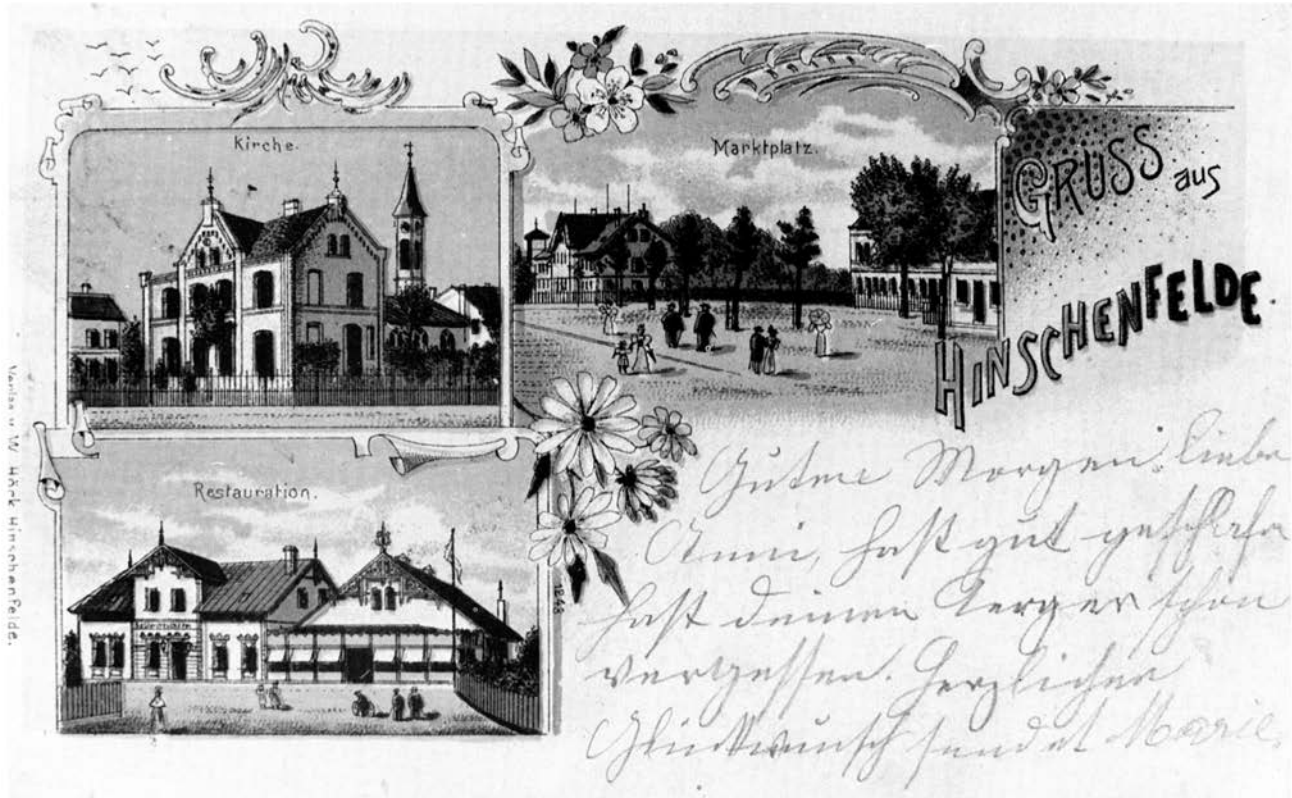 Kirche.
Marktplatz.
GRUSS aus
HINSCHENFELDE.
Restauration.
Verlag v. W. Härk Hinschenfelde.
Guten Morgen liebe
Anni, hast gut geschlafen
hast deinen Aerger schon
vergessen. Herzlichen
Glückwunsch sendet Marie.